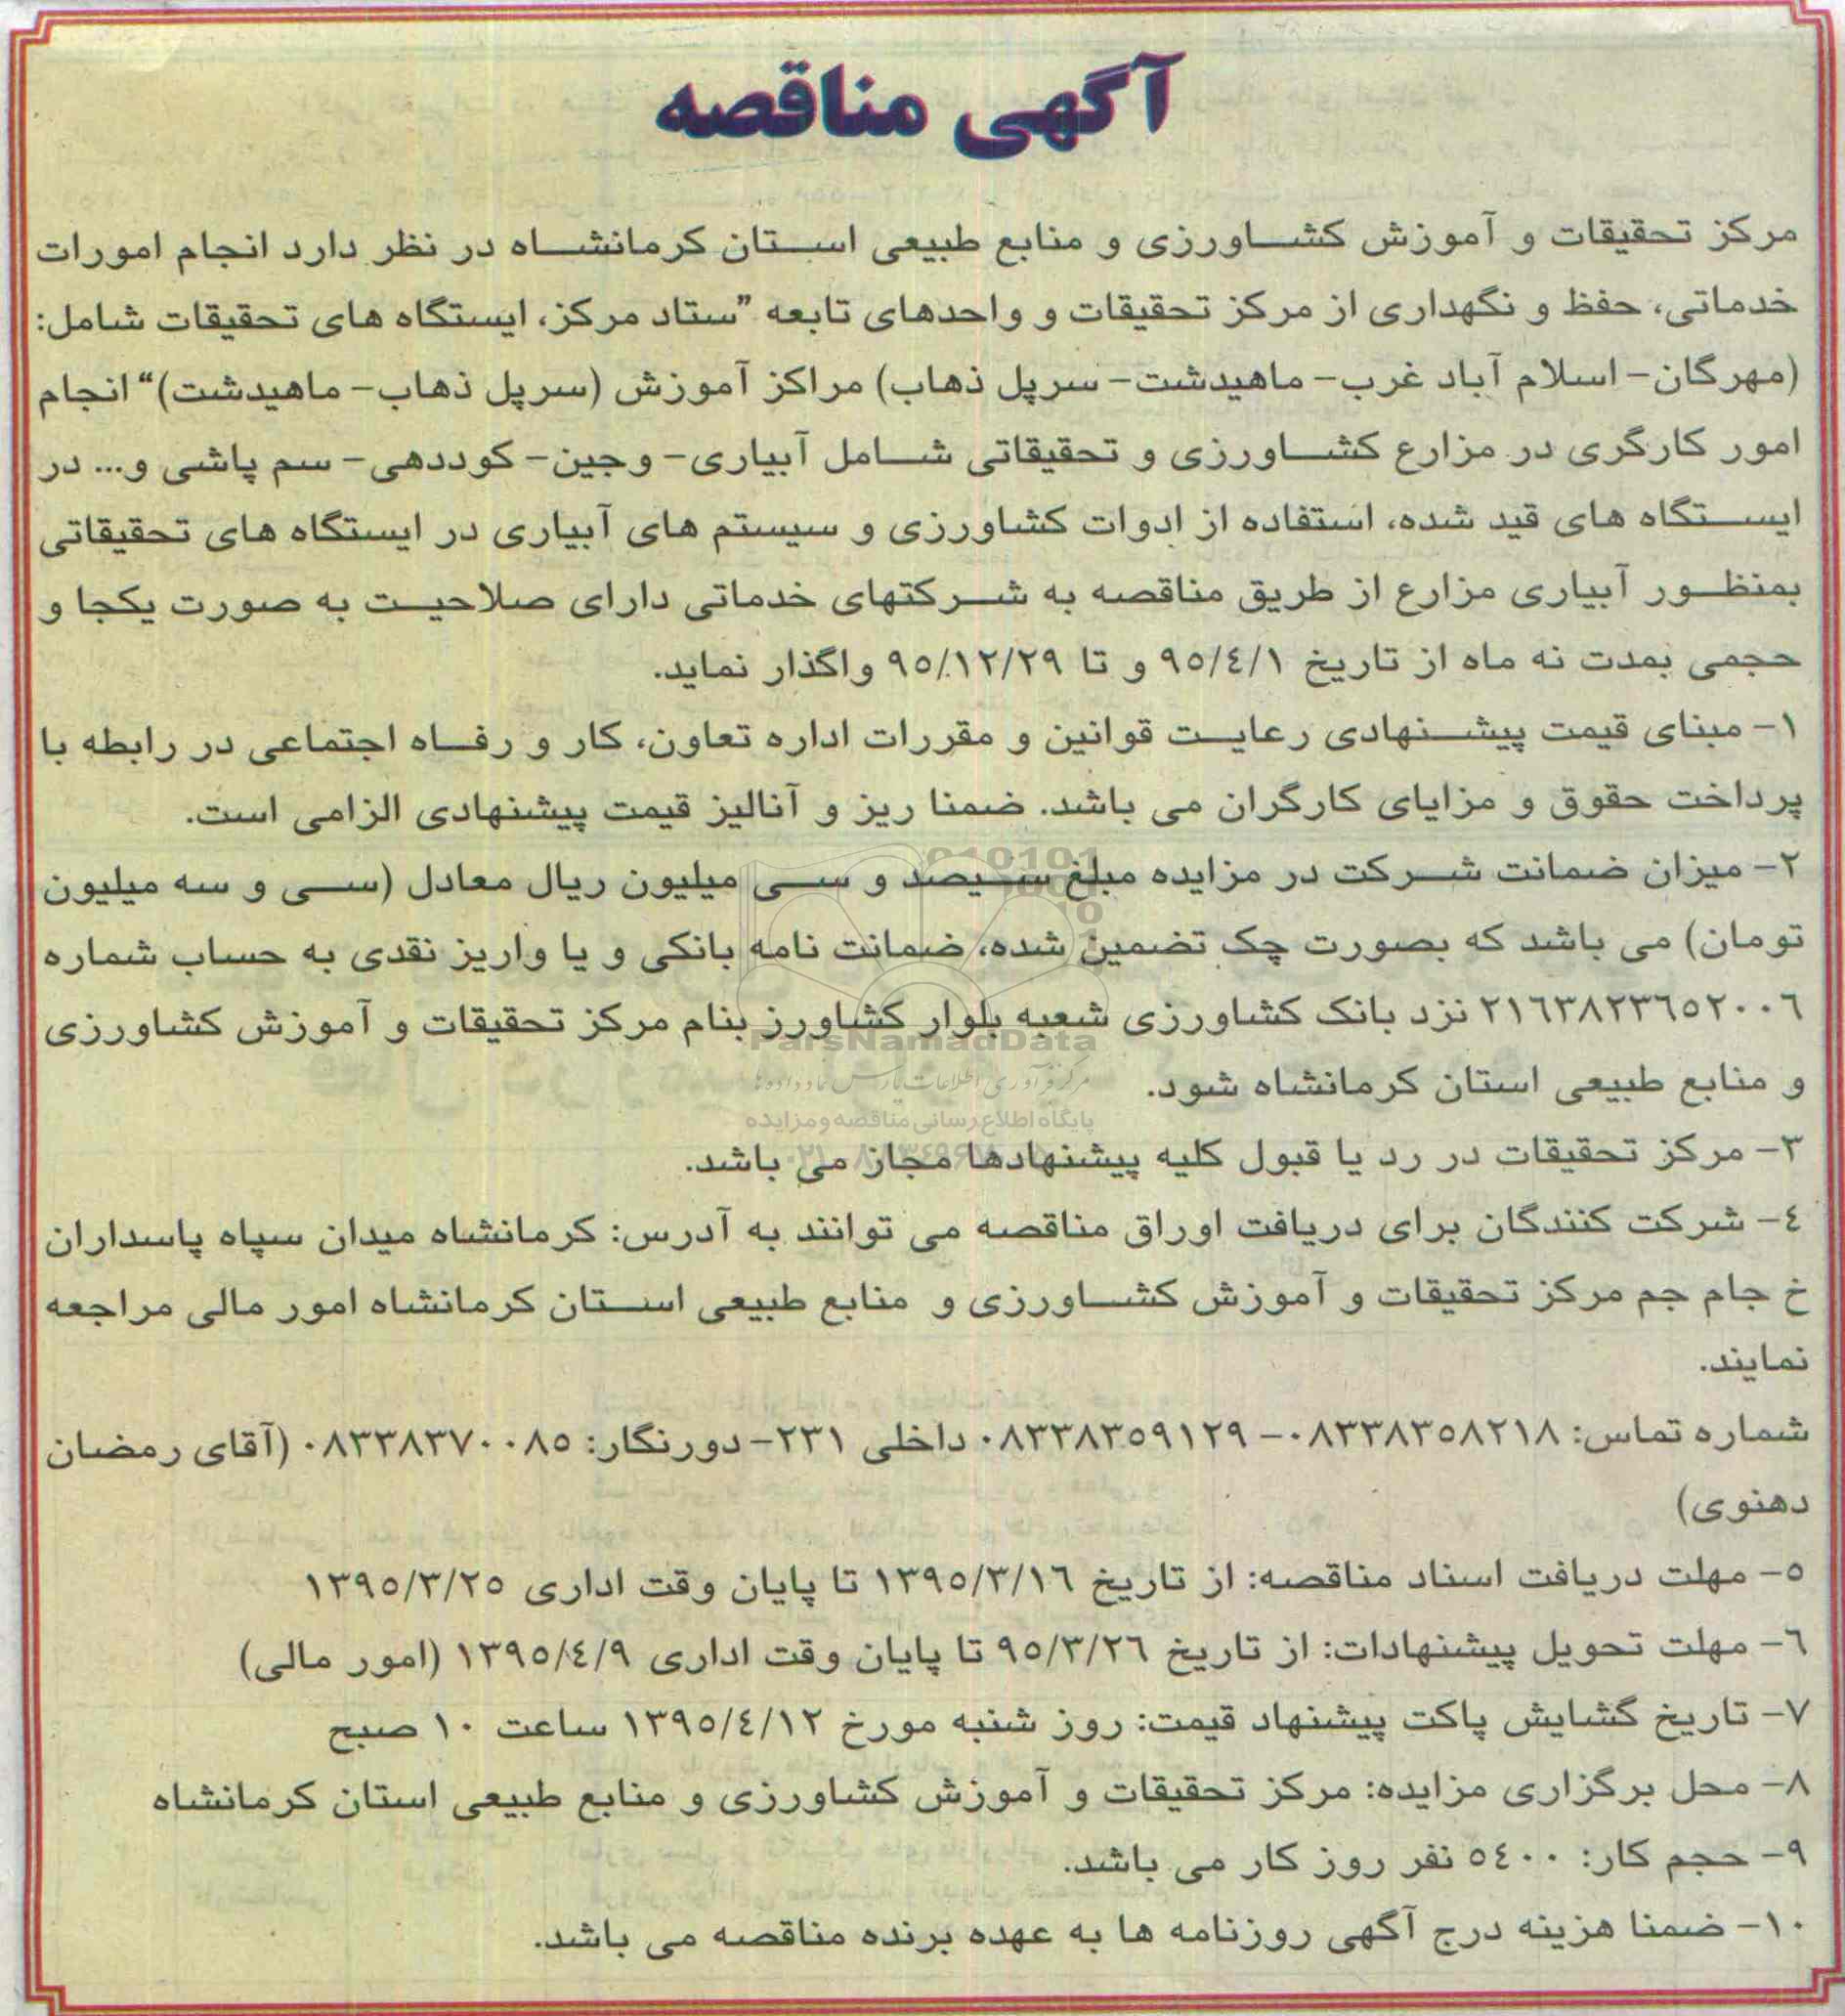 آگهی مناقصه
مرکز تحقیقات و آموزش کشاورزی و منابع طبیعی استان کرمانشاه در نظر دارد انجام امورات
خدماتی، حفظ و نگهداری از مرکز تحقیقات و واحدهای تابعه "ستاد مرکز، ایستگاه های تحقیقات شامل:
(مهرگان- اسلام آباد غرب- ماهیدشت- سرپل ذهاب) مراکز آموزش (سرپل ذهاب- ماهیدشت)" انجام
امور کارگری در مزارع کشاورزی و تحقیقاتی شامل آبیاری- وجین- کوددهی- سم پاشی و... در
ایستگاه های قید شده، استفاده از ادوات کشاورزی و سیستم های آبیاری در ایستگاه های تحقیقاتی
بمنظور آبیاری مزارع از طریق مناقصه به شرکتهای خدماتی دارای صلاحیت به صورت یکجا و
حجمی بمدت نه ماه از تاریخ ۹۵/۴/۱ و تا ۹۵/۱۲/۲۹ واگذار نماید.
۱- مبنای قیمت پیشنهادی رعایت قوانین و مقررات اداره تعاون، کار و رفاه اجتماعی در رابطه با
پرداخت حقوق و مزایای کارگران می باشد. ضمنا ریز و آنالیز قیمت پیشنهادی الزامی است.
۲- میزان ضمانت شرکت در مزایده مبلغ سیصد و سی میلیون ریال معادل (سی و سه میلیون
تومان) می باشد که بصورت چک تضمین شده، ضمانت نامه بانکی و یا واریز نقدی به حساب شماره
۲۱۶۳۸۲۳۶۵۲۰۰۶ نزد بانک کشاورزی شعبه بلوار کشاورز بنام مرکز تحقیقات و آموزش کشاورزی
و منابع طبیعی استان کرمانشاه شود.
۳- مرکز تحقیقات در رد یا قبول کلیه پیشنهادها مجاز می باشد.
۴- شرکت کنندگان برای دریافت اوراق مناقصه می توانند به آدرس: کرمانشاه میدان سپاه پاسداران
خ جام جم مرکز تحقیقات و آموزش کشاورزی و منابع طبیعی استان کرمانشاه امور مالی مراجعه
نمایند.
شماره تماس: ۰۸۳۳۸۳۵۸۲۱۸- ۰۸۳۳۸۳۵۹۱۲۹ داخلی ۲۳۱- دورنگار: ۰۸۳۳۸۳۷۰۰۸۵ (آقای رمضان
دهنوی)
۵- مهلت دریافت اسناد مناقصه: از تاریخ ۱۳۹۵/۳/۱۶ تا پایان وقت اداری ۱۳۹۵/۳/۲۵
۶- مهلت تحویل پیشنهادات: از تاریخ ۹۵/۳/۲۶ تا پایان وقت اداری ۱۳۹۵/۴/۹ (امور مالی)
۷- تاریخ گشایش پاکت پیشنهاد قیمت: روز شنبه مورخ ۱۳۹۵/۴/۱۲ ساعت ۱۰ صبح
۸- محل برگزاری مزایده: مرکز تحقیقات و آموزش کشاورزی و منابع طبیعی استان کرمانشاه
۹- حجم کار: ۵۴۰۰ نفر روز کار می باشد.
۱۰- ضمنا هزینه درج آگهی روزنامه ها به عهده برنده مناقصه می باشد.
ParsNamadData
مرکز فرآوری اطلاعات پارس نماد داده ها
پایگاه اطلاع رسانی مناقصه و مزایده